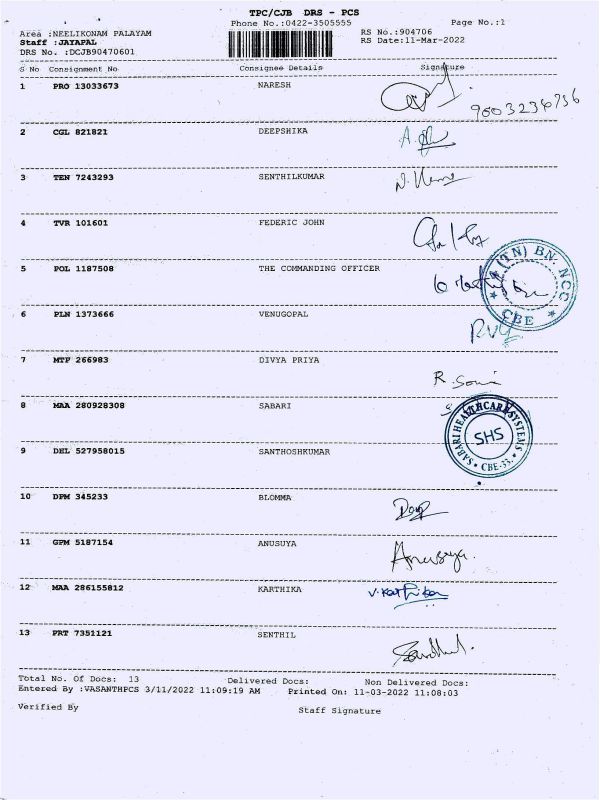 TPC/CJB DRS - PCS
Phone No.:0422-3505555 Page No.:1
Area :NEELIKONAM PALAYAM RS No.:904706
Staff :JAYAPAL RS Date:11-Mar-2022
DRS No. :DCJB90470601
S No Consignment No Consignee Details Signature
1 PRO 13033673 NARESH
9003236736
2 CGL 821821 DEEPSHIKA
3 TEN 7243293 SENTHILKUMAR
4 TVR 101601 FEDERIC JOHN
5 POL 1187508 THE COMMANDING OFFICER
(TN) BN. NCC
★ CBE ★
6 PLN 1373666 VENUGOPAL
7 MTP 266983 DIVYA PRIYA
R. Soni
8 MAA 280928308 SABARI
SABARI HEALTHCARE SYSTEMS
SHS
• CBE-33. •
9 DEL 527958015 SANTHOSHKUMAR
10 DPM 345233 BLOMMA
11 GPM 5187154 ANUSUYA
Anusuya.
12 MAA 286155812 KARTHIKA
V. Karthika
13 PRT 7351121 SENTHIL
Total No. Of Docs: 13 Delivered Docs: Non Delivered Docs:
Entered By :VASANTHPCS 3/11/2022 11:09:19 AM Printed On: 11-03-2022 11:08:03
Verified By Staff Signature